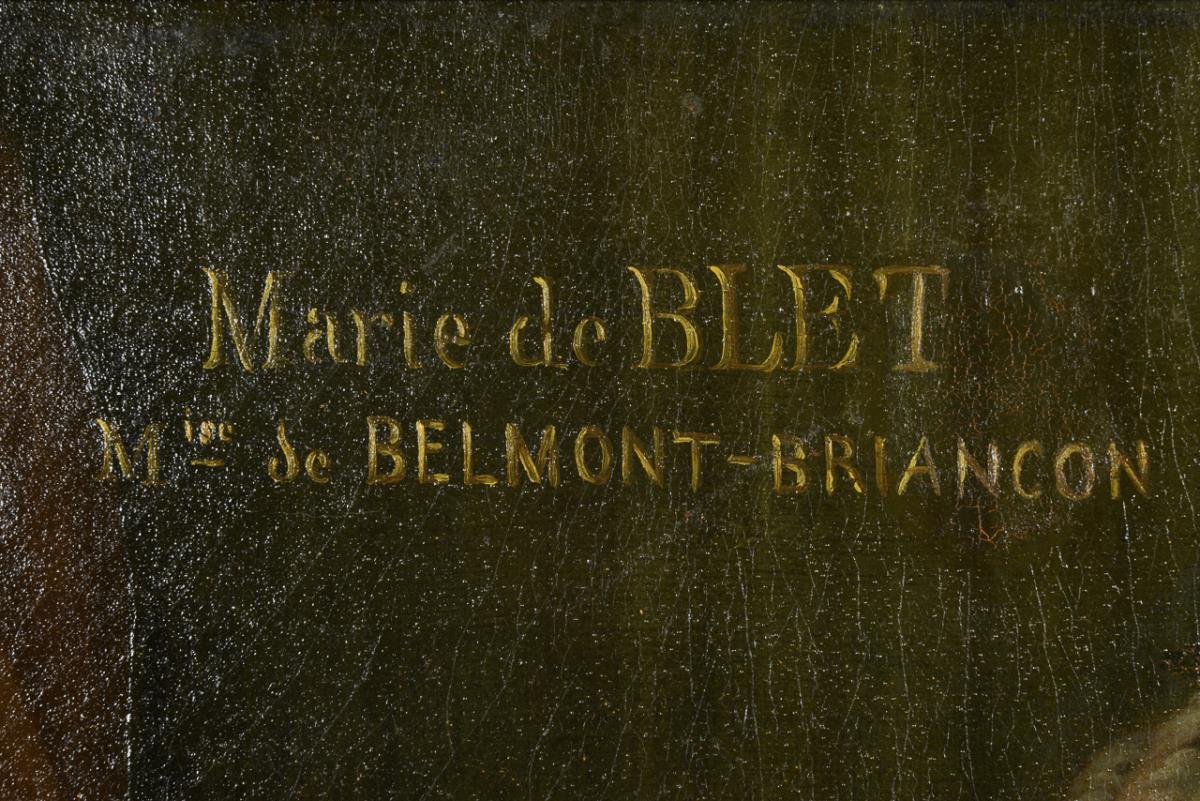 Marie de BLET
Mise de BELMONT-BRIANCON